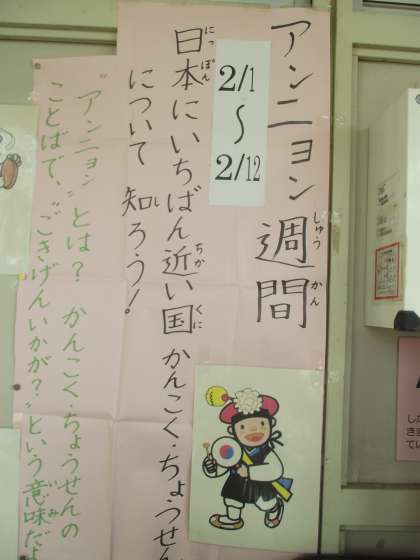 アンニョン週間
しゅうかん
2/1
〜
2/12
日本にいちばん近い国かんこく・ちょうせん
にっぽん
ちか
くに
について知ろう！
し
"アンニョン"とは？かんこく・ちょうせんの
ことばで、"ごきげんいかが？"という意味だよ
いみ